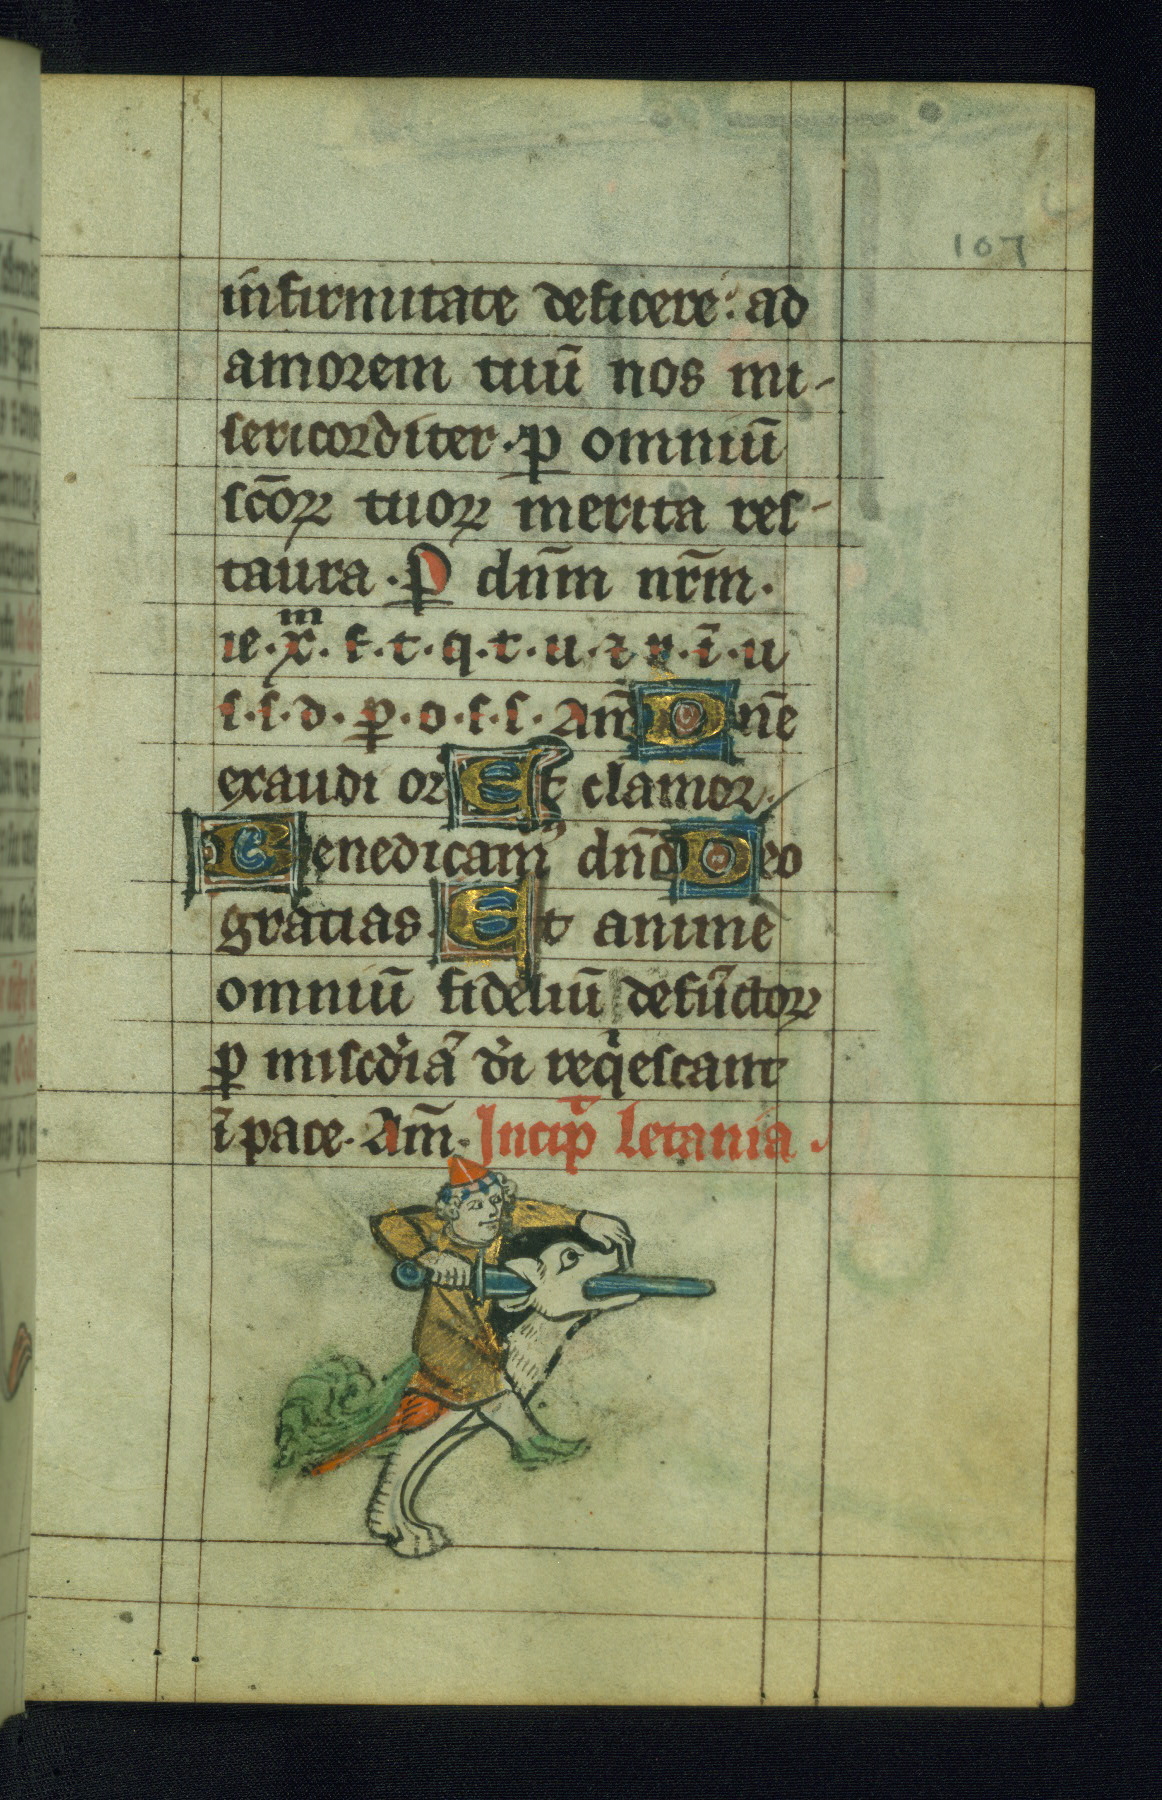 107
infirmitate deficere: ad
amorem tuū nos mi-
sericorditer. ꝑ omniū
scōꝝ tuoꝝ merita res-
taura. ꝑ dn̄m nr̄m.
ie. xͫ. f. t. q. t. u. ⁊ r. ī. u
s. s. d. ꝑ. o. s. s. Am̄ Dn̄e
exaudi or Et clamor.
Benedicam⁹ dn̄o Deo
gratias. Et anime
omniū fideliū defūctoꝝ
ꝑ miscd'ia dī req'escant
ī pace. Am̄. Incip̄ letania.